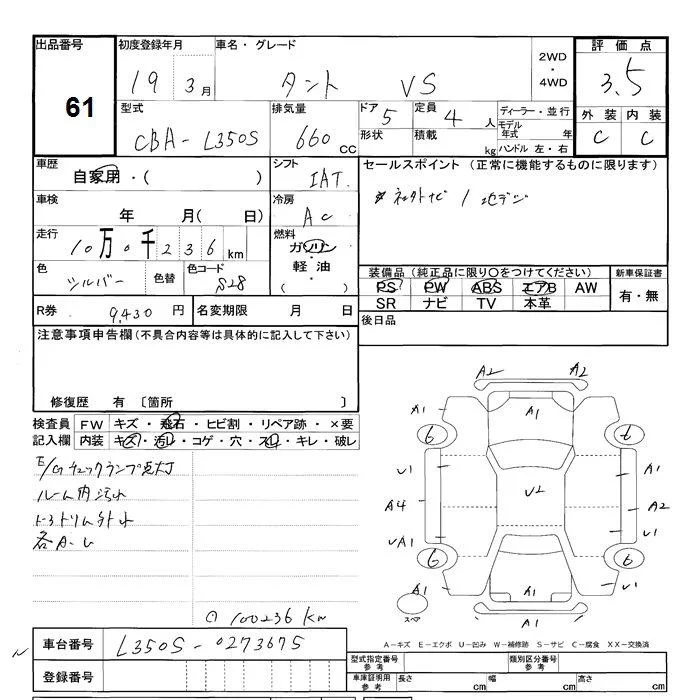 出品番号 初度登録年月 車名・グレード 2WD・4WD 評価点
61 19 3月 タント VS 3.5
型式 排気量 ドア 5 定員 4 人 ディーラー・並行 外装 内装
CBA-L350S 660 CC 形状 積載 kg モデル年式 年 C C
ハンドル 左・右
車歴 シフト セールスポイント (正常に機能するものに限ります)
自家用・( ) IAT
車検 冷房
年 月( 日) AC
走行 燃料
10万0千236km ガソリン・軽油・( )
色 色替 色コード 装備品 (純正品に限り○をつけてください) 新車保証書
シルバー S28 PS PW ABS エアB AW 有・無
SR ナビ TV 本革
R券 9,430 円 名変期限 月 日 後日品
注意事項申告欄(不具合内容等は具体的に記入して下さい)
修復歴 有 〔箇所 〕
検査員 FW キズ・飛石・ヒビ割・リペア跡・×要
記入欄 内装 キズ・汚れ・コゲ・穴・スレ・キレ・破レ
E/Gチェックランプ点灯
ルーム内汚れ
各A-U
⊙ 100236 Km
A2 A2
A1 A1 A1
6 6
U1 A1
U2
A4 A2
UA1 U1
6 6
A1 A1 U1
スペア A1
A-キズ E-エクボ U-凹み W-補修跡 S-サビ C-腐食 XX-交換済
車台番号 L350S-0273675
登録番号
型式指定番号 参考 類別区分番号 参考
車庫証明用 参考 長さ cm 幅 cm 高さ cm